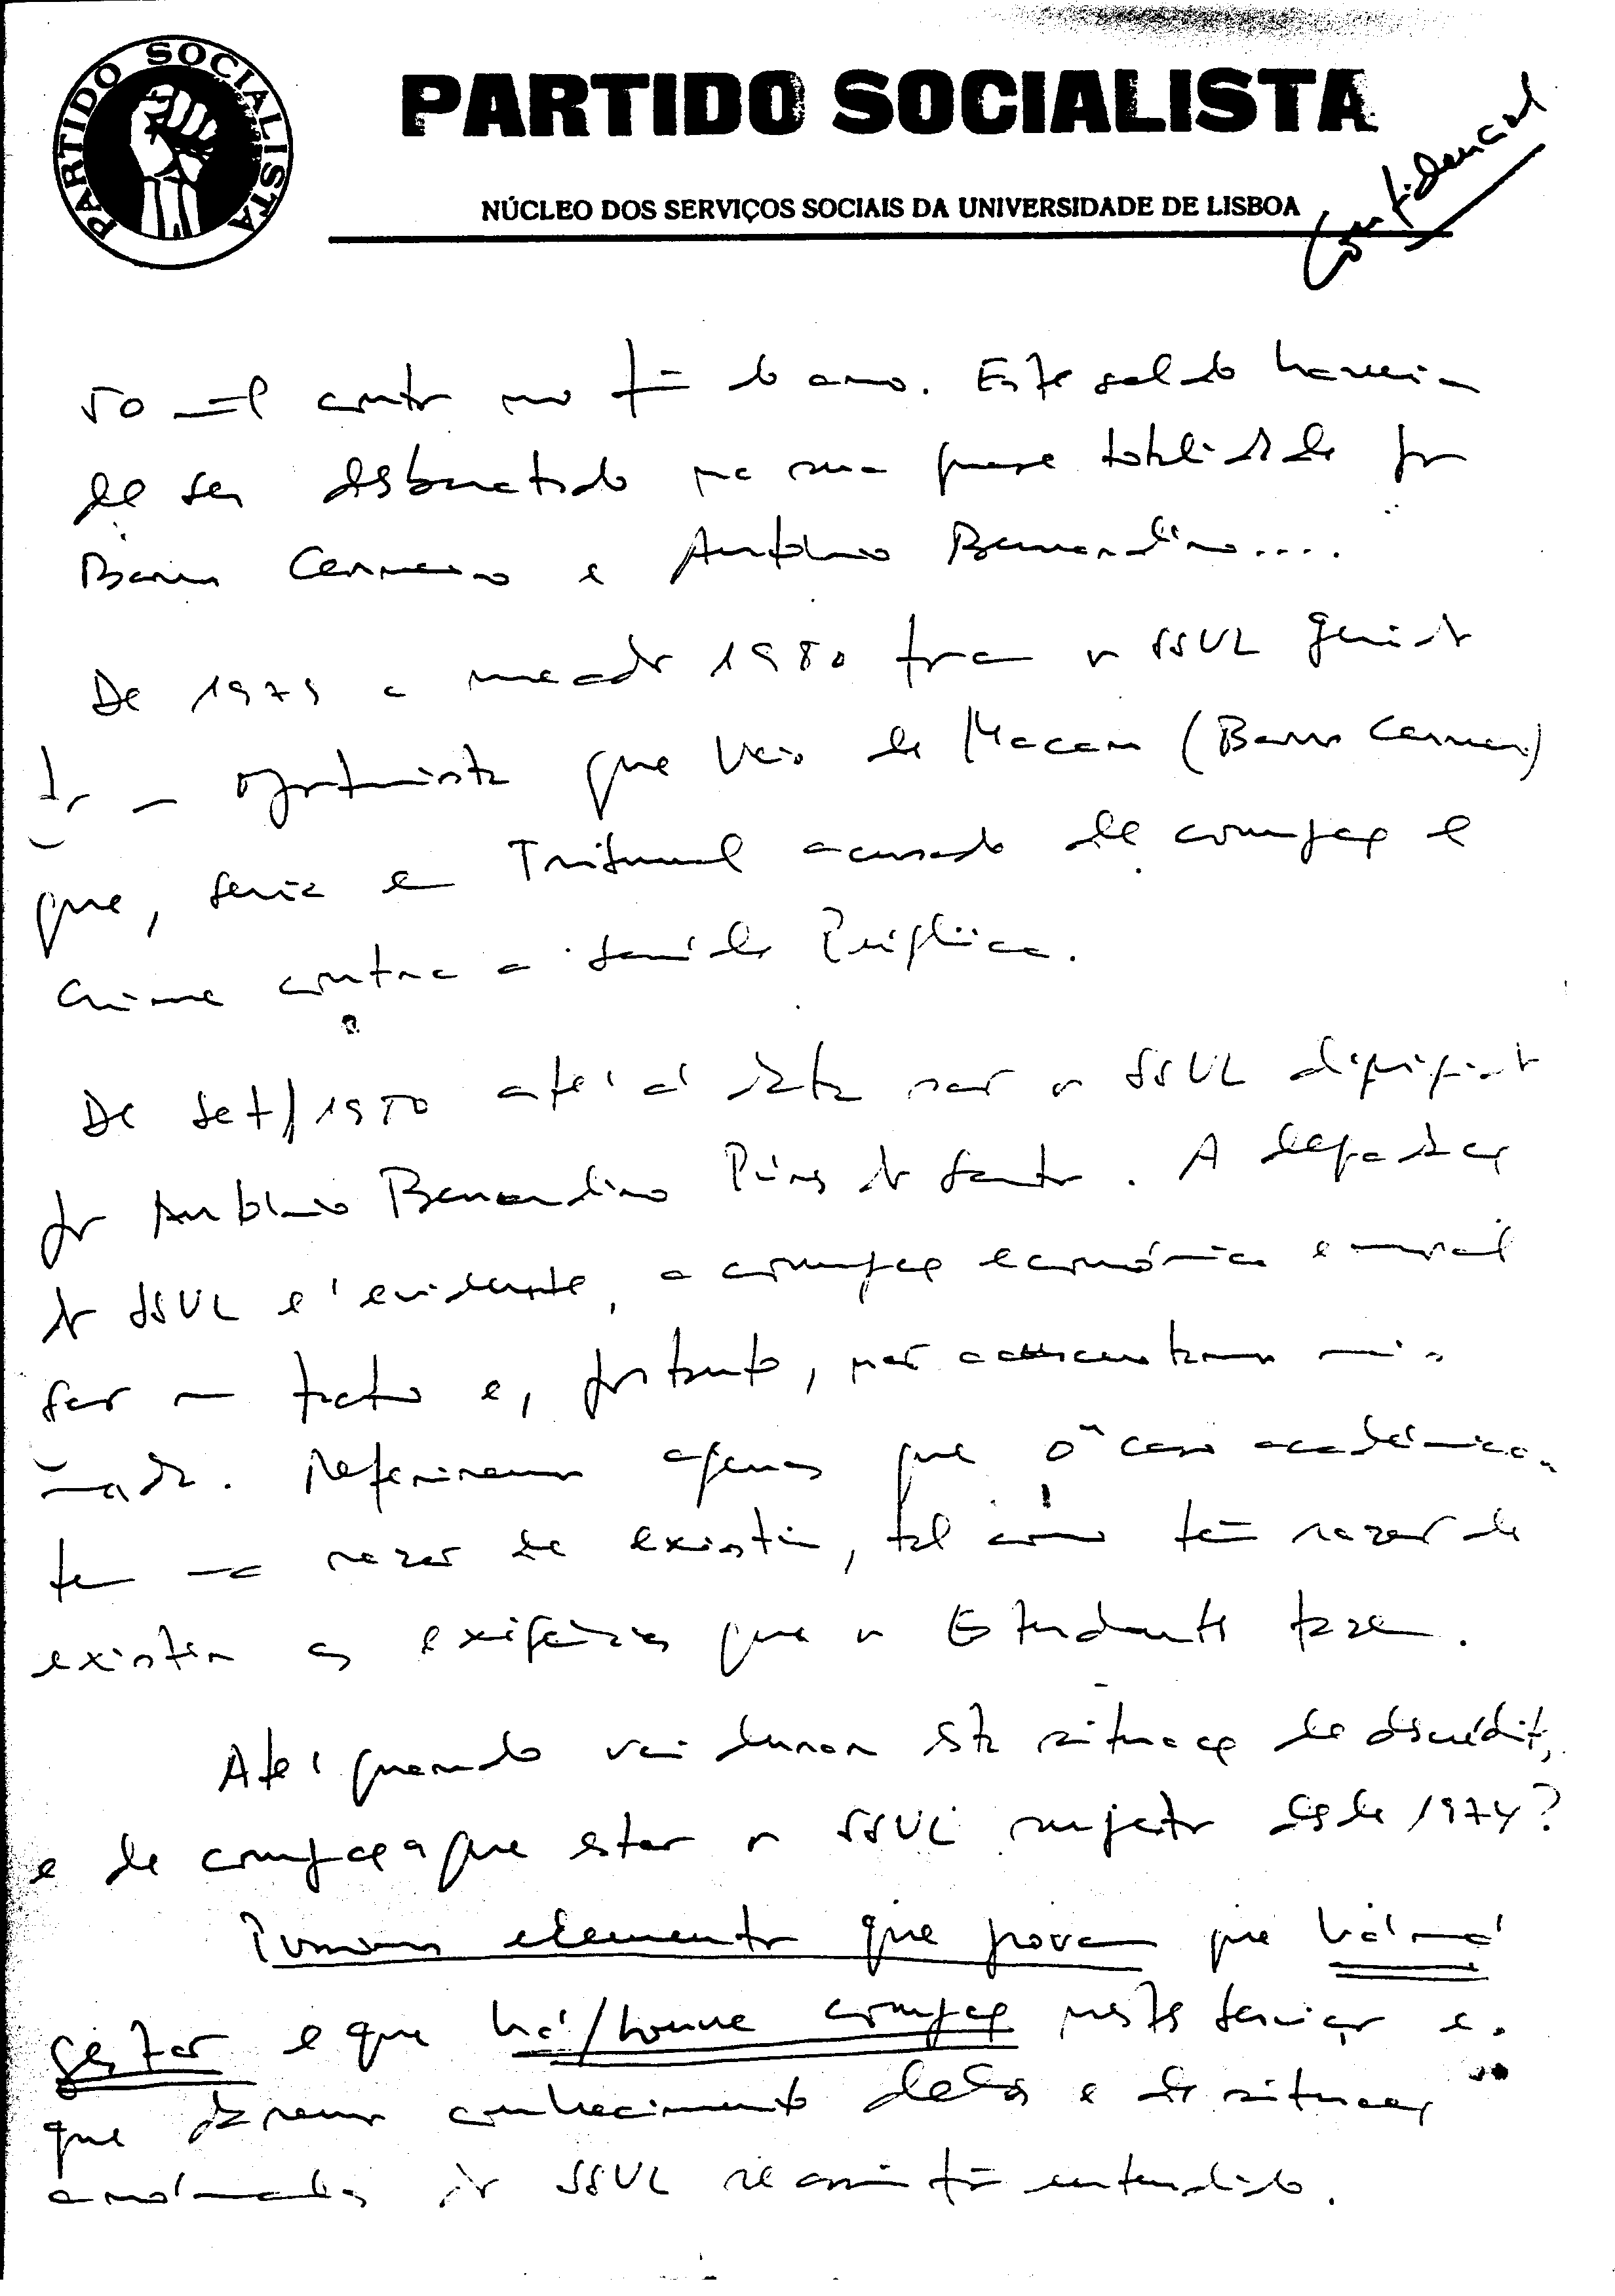 PARTIDO SOCIALISTA
PARTIDO SOCIALISTA
NÚCLEO DOS SERVIÇOS SOCIAIS DA UNIVERSIDADE DE LISBOA
Confidencial
50 mil contos no fim do ano. Este saldo haveria
de ser desbaratado na sua quase totalidade por
Barros Carneiro e António Bernardino....
De 1979 a meados 1980 foram os SSUL geridos
por um oportunista que veio de Macau (Barros Carneiro)
que, seria em Tribunal acusado de corrupção e
crime contra a Saúde Pública.
De Set/1980 até à data são os SSUL dirigidos
por António Bernardino Pires dos Santos. A degradação
dos SSUL é evidente, a corrupção económica e moral
são um facto e, portanto, não acrescentamos mais
nada. Referiremos apenas que o "caso académico"
tem razão de existir, tal como têm razão de
existir as exigências que os Estudantes fazem.
Até quando vai durar esta situação de descrédito,
e de corrupção a que estão os SSUL sujeitos desde 1974?
Possuimos elementos que provam que há má
gestão e que há/houve corrupção nestes Serviços e
que daremos conhecimento deles e de situações
anómalas dos SSUL se assim fôr entendido.